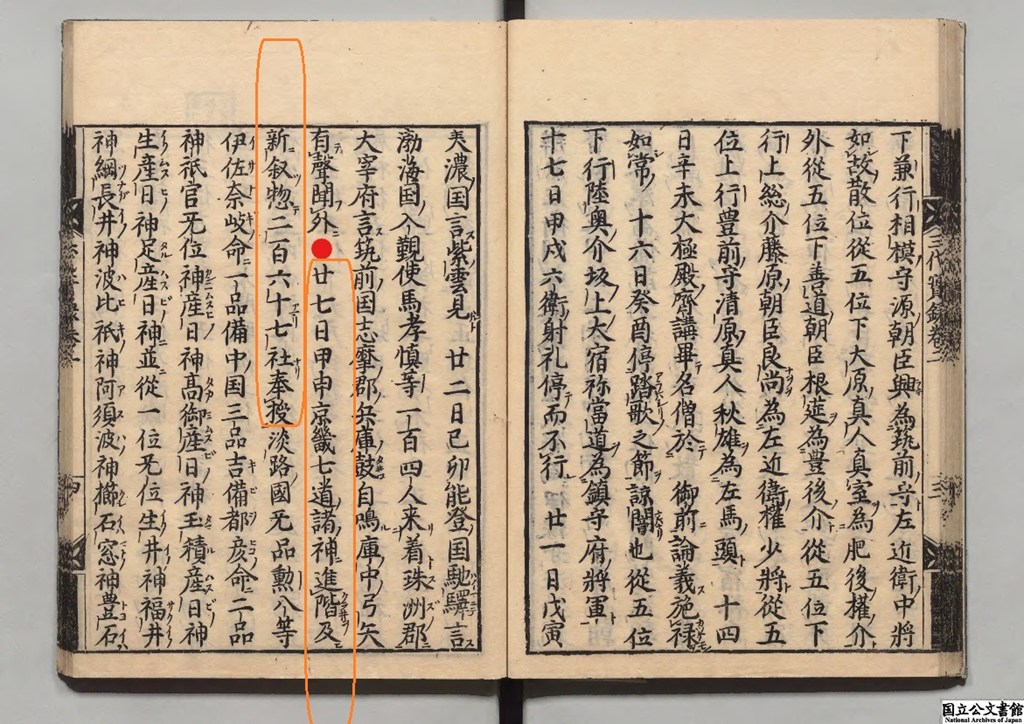 下兼行相模守源朝臣興為筑前守左近衛中將
如故散位從五位下大原真人真室為肥後權介
外從五位下善道朝臣根莚為豊後介從五位下
行上総介藤原朝臣良尚為左近衛權少將從五
位上行豊前守清原真人秋雄為左馬頭 十四
日辛未大極殿齋講畢名僧於 御前論義施禄
如常 十六日癸酉停踏歌之節諒闇也從五位
下行陸奥介坂上大宿祢當道為鎮守府將軍
十七日甲戌六衛射礼停而不行 廿一日戊寅
美濃国言紫雲見 廿二日己卯能登国馳驛言
渤海国入覲使馬孝慎等一百四人来着珠洲郡
大宰府言筑前国志摩郡兵庫鼓自鳴庫中弓矢
有聲聞外 廿七日甲申京畿七道諸神進階及
新叙惣二百六十七社奉授淡路國无品勲八等
伊佐奈岐命一品備中国三品吉備都彦命二品
神祇官无位神産日神髙御産日神玉積産日神
生産日神足産日神並從一位无位生井神福井
神綱長井神波比祇神阿須波神櫛石窓神豊石
三代實録巻二
国立公文書館
National Archives of Japan